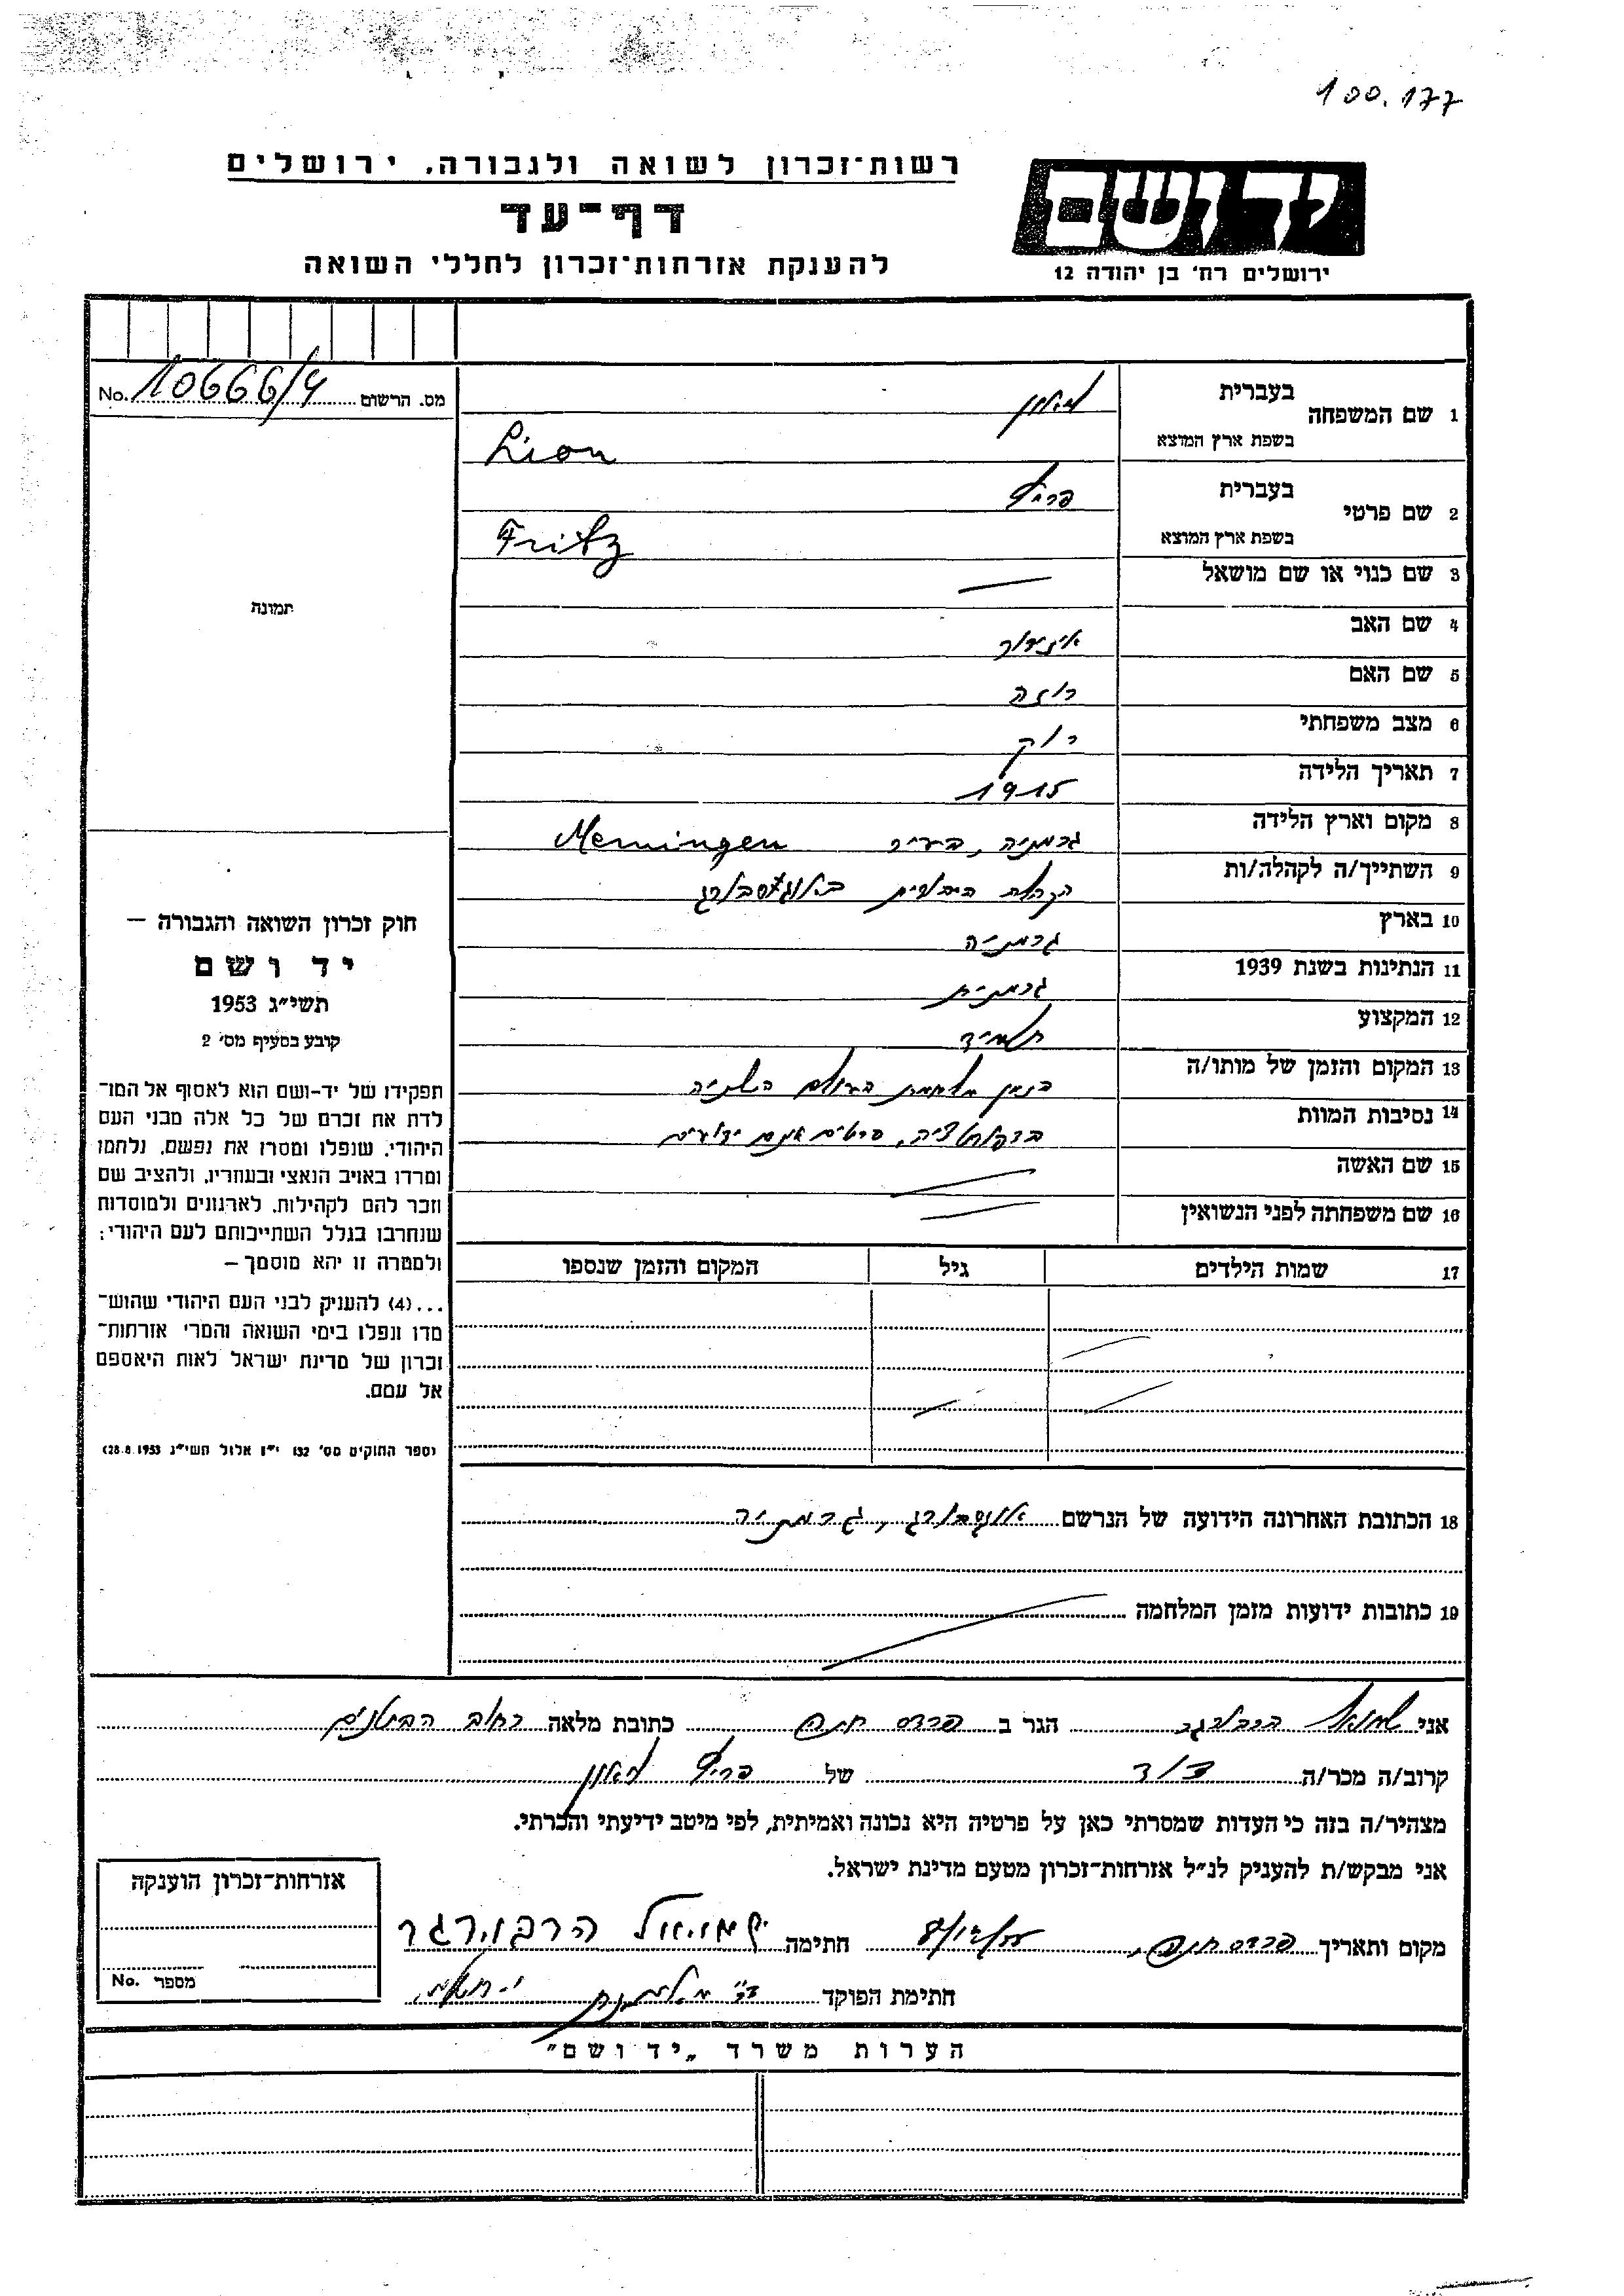 100.177
רשות־זכרון לשואה ולגבורה, ירושלים
דף־עד
להענקת אזרחות־זכרון לחללי השואה
יד ושם
ירושלים רח' בן יהודה 12
מס. הרשום 10666/4 No.
1 שם המשפחה בעברית ליאון
בשפת ארץ המוצא Lion
2 שם פרטי בעברית פריץ
בשפת ארץ המוצא Fritz
3 שם כנוי או שם מושאל
4 שם האב איזידור
5 שם האם רוזה
6 מצב משפחתי רווק
7 תאריך הלידה 1915
8 מקום וארץ הלידה גרמניה, בעיר Memingen
9 השתייך/ה לקהלה/ות
10 בארץ גרמניה
11 הנתינות בשנת 1939 גרמנית
12 המקצוע תלמיד
13 המקום והזמן של מותו/ה בזמן מלחמת העולם השניה
14 נסיבות המוות פרטים אינם ידועים
15 שם האשה
16 שם משפחתה לפני הנשואין
17 שמות הילדים גיל המקום והזמן שנספו
תמונה
חוק זכרון השואה והגבורה —
יד ושם
תשי״ג 1953
קובע בסעיף מס' 2
תפקידו של יד-ושם הוא לאסוף אל המו־
לדת את זכרם של כל אלה מבני העם
היהודי, שנפלו ומסרו את נפשם, נלחמו
ומרדו באויב הנאצי ובעוזריו, ולהציב שם
וזכר להם לקהילות, לארגונים ולמוסדות
שנחרבו בגלל השתייכותם לעם היהודי;
ולמטרה זו יהא מוסמך —
...(4) להעניק לבני העם היהודי שהוש־
מדו ונפלו בימי השואה והמרי אזרחות־
זכרון של מדינת ישראל לאות היאספם
אל עמם.
(ספר החוקים מס' 132 י״ז אלול תשי״ג 28.8.1953)
18 הכתובת האחרונה הידועה של הנרשם אוגסבורג, גרמניה
19 כתובות ידועות מזמן המלחמה
אני שמואל הרבורגר הגר ב פרדס חנה כתובת מלאה רחוב הבוטנים
קרוב/ה מכר/ה דוד של פריץ ליאון
מצהיר/ה בזה כי העדות שמסרתי כאן על פרטיה היא נכונה ואמיתית, לפי מיטב ידיעתי והכרתי.
אני מבקש/ת להעניק לנ״ל אזרחות־זכרון מטעם מדינת ישראל.
מקום ותאריך פרדס חנה, חתימה שמואל הרבורגר
חתימת הפוקד
אזרחות־זכרון הוענקה
מספר No.
הערות משרד „יד ושם"